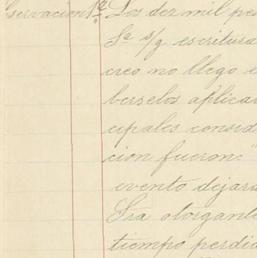 servacion 1ª Los dez mil pes
Sª s/g escritura
creo no llego
berselos aplica
cipales consid
cion fueron: "
evento dejara
Sra otorgant
tiempo perdi